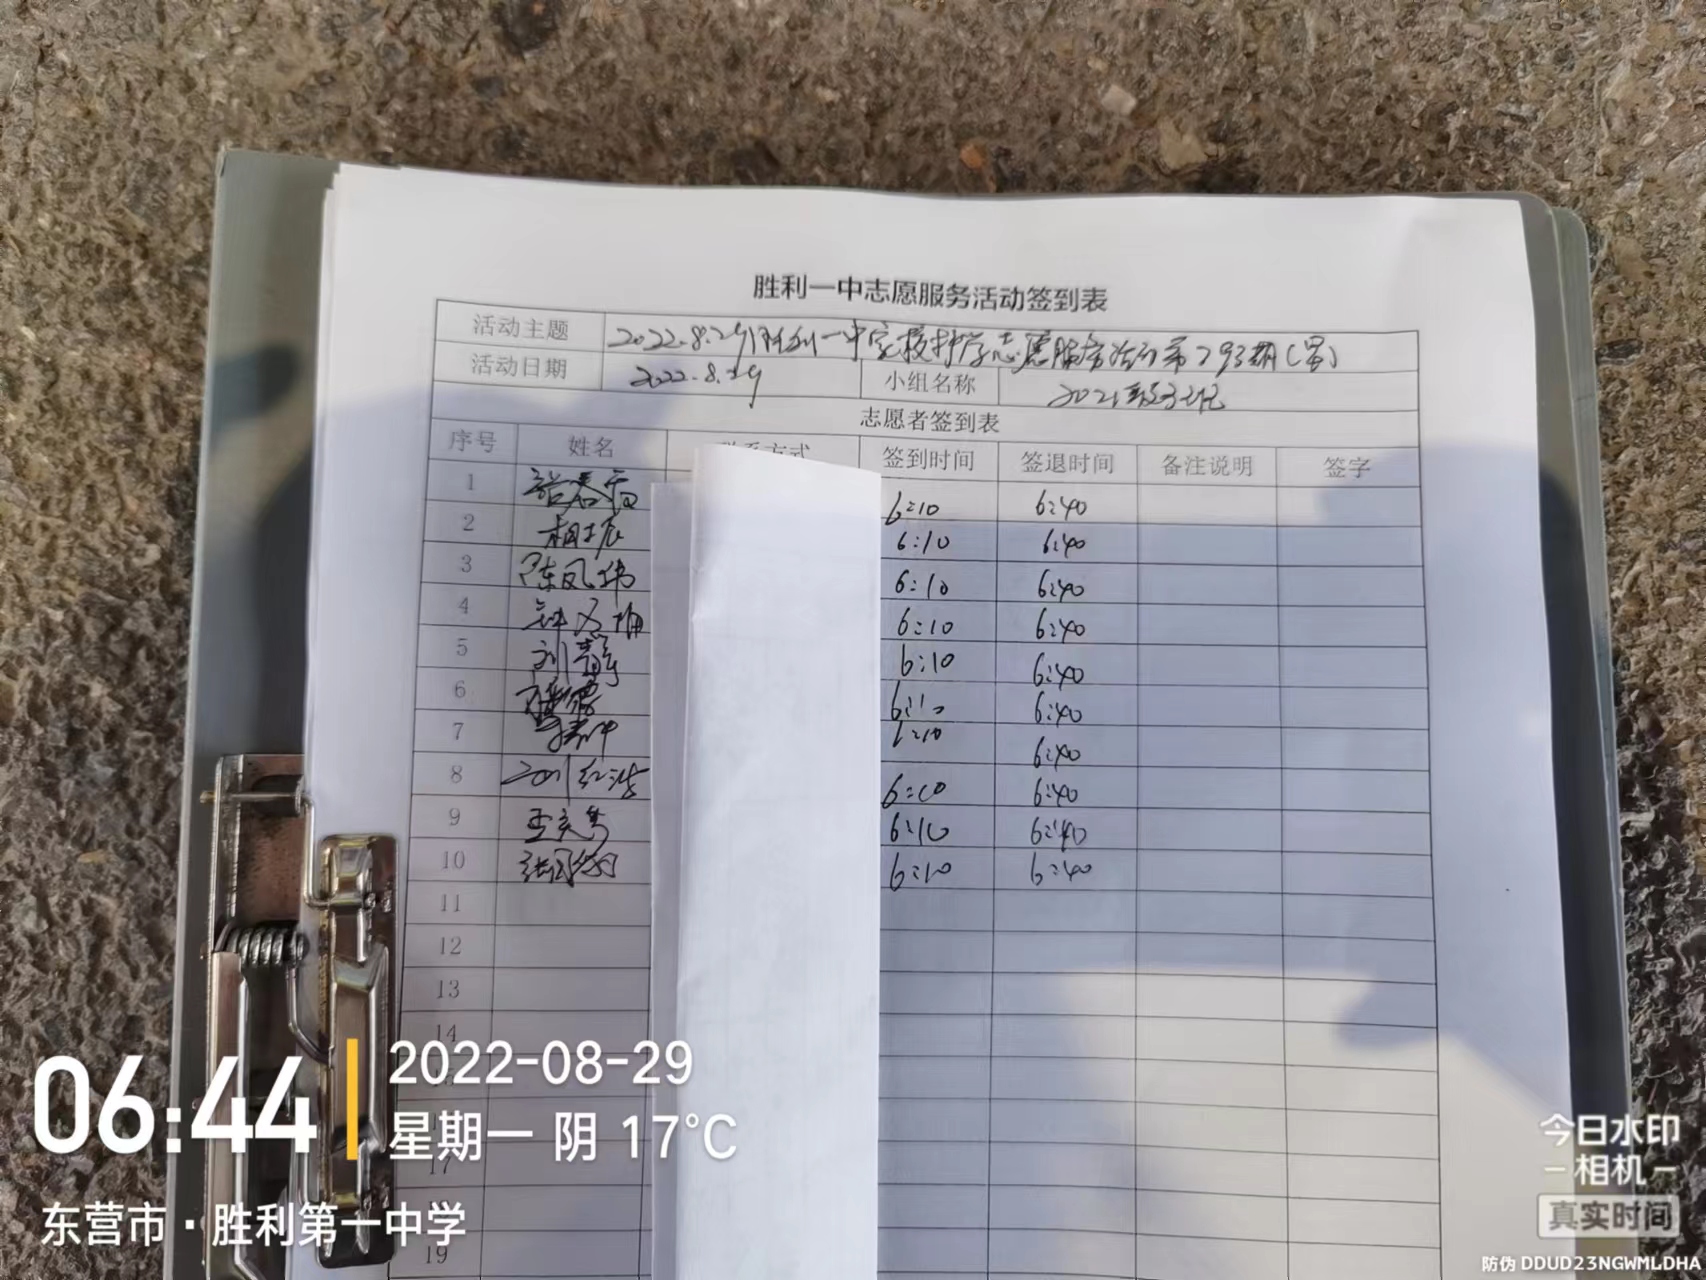 胜利一中志愿服务活动签到表
活动主题 2022.8.29胜利一中家校护学志愿服务活动第293期(
活动日期 2022.8.29 小组名称 2021级
志愿者签到表
序号 姓名 方式 签到时间 签退时间 备注说明 签字
1 6:10 6:40
2 6:10 6:40
3 陈凤 6:10 6:40
4 6:10 6:40
5 刘静 6:10 6:40
6 6:10 6:40
7 6:40
8 刘红 6:10 6:40
9 王 6:10 6:40
10 张 6:10 6:40
11
12
13
14
17
19
06:44
2022-08-29
星期一 阴 17°C
东营市·胜利第一中学
今日水印
相机
真实时间
防伪 DDUD23NGWMLDHA